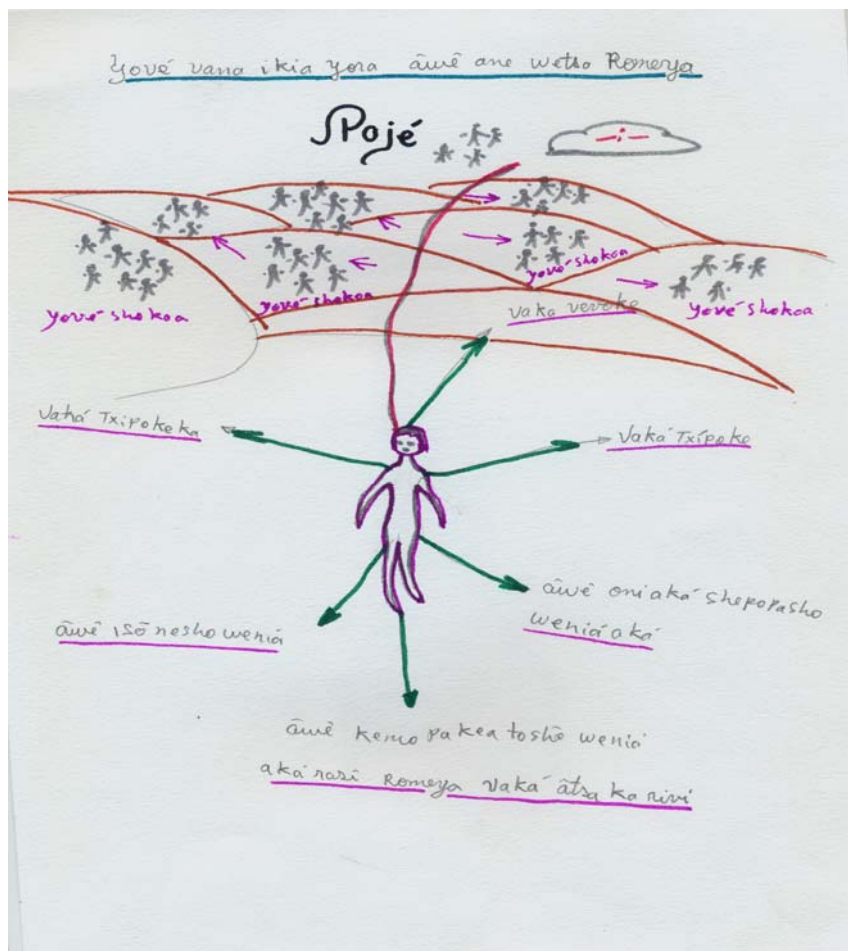 yové vana ikia yora ãwẽ ane wetsa Romeya
Pajé
yové shokoa
yové shokoa
yové shokoa
yové shokoa
vaka vevoke
vaká Txipokeka
vaká Txipoke
ãwẽ oniaká shepopasho
weniá aká
ãwẽ isõ nesho weniá
ãwẽ kemo pakea toshõ weniá
aká rasĩ Romeya vaká ãtsa ka rivi